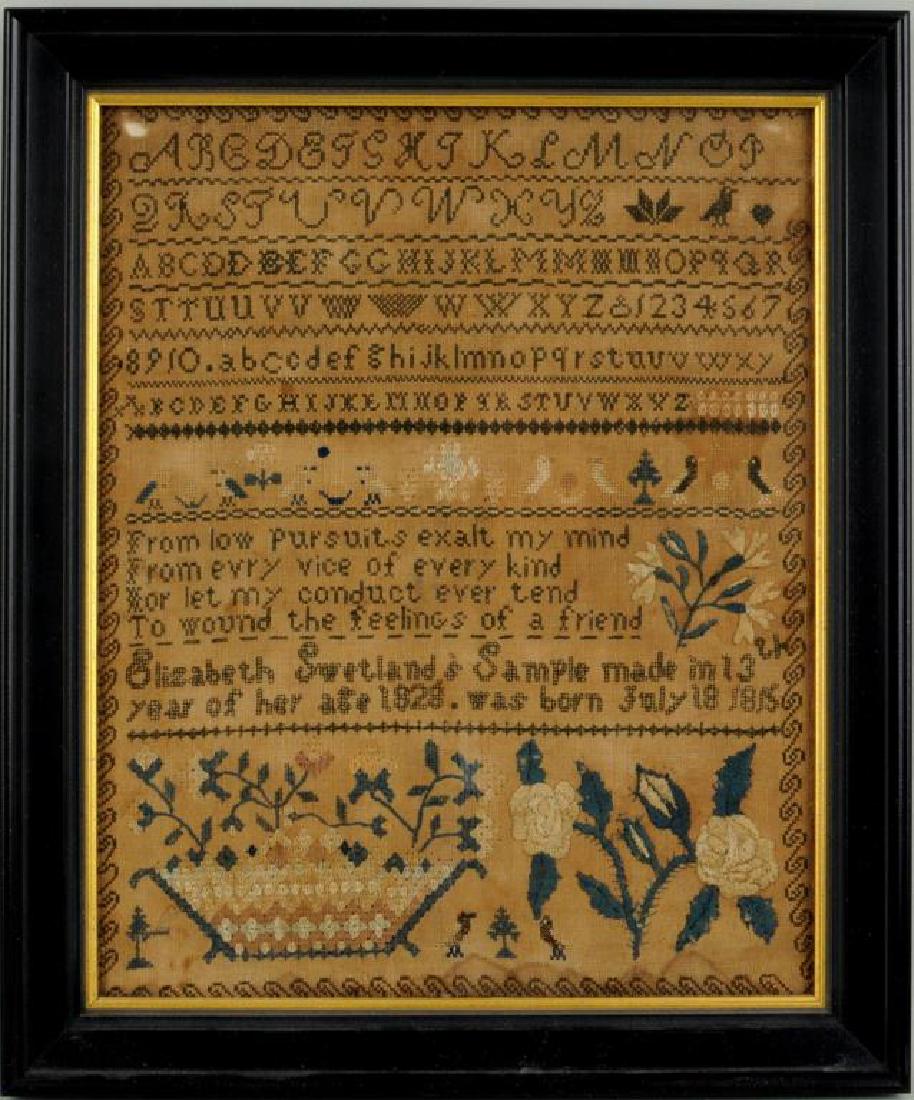 A B C D E F G H I K L M N O P
Q R S T U V W X Y Z
A B C D D E E F G G H I J K L M M N N O P q Q R
S T T U U V V W W W W X Y Z & 1 2 3 4 5 6 7
8 9 10 . a b c c d e f g h i j k l m n o p q r s t u v v w x y
A B C D E F G H I J K L M N O P q R S T U V W X Y Z
From low pursuits exalt my mind
From evry vice of every kind
Nor let my conduct ever tend
To wound the feelings of a friend
Elizabeth Swetland's Sample made in 13th
year of her age 1828. was born July 18 1815